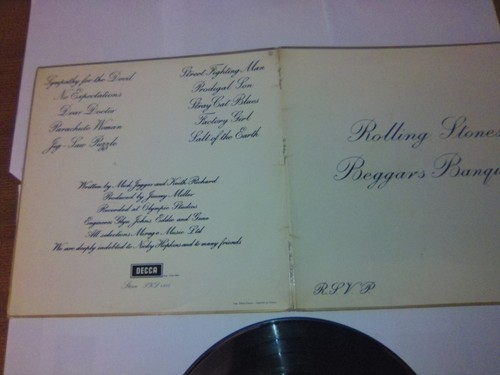 Sympathy for the Devil
No Expectations
Dear Doctor
Parachute Woman
Jig-Saw Puzzle
Street Fighting Man
Prodigal Son
Stray Cat Blues
Factory Girl
Salt of the Earth
Written by Mick Jagger and Keith Richard
Produced by Jimmy Miller
Recorded at Olympic Studios
Engineers Glyn Johns Eddie and Gene
All selections Mirage Music Ltd
We are deeply indebted to Nicky Hopkins and to many friends
DECCA
Stereo
Rolling Stones
Beggars Banqu
R.S.V.P.